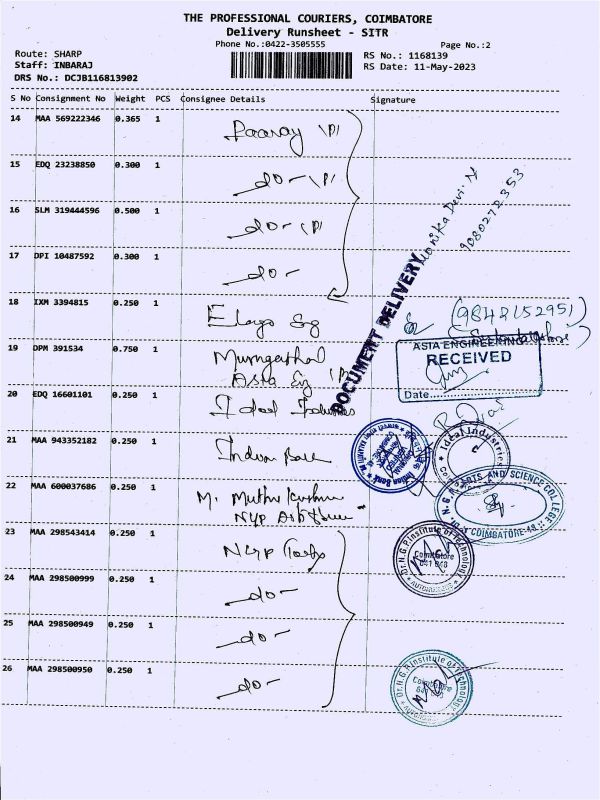 THE PROFESSIONAL COURIERS, COIMBATORE
Delivery Runsheet - SITR
Phone No.:0422-3505555 Page No.:2
Route: SHARP RS No.: 1168139
Staff: INBARAJ RS Date: 11-May-2023
DRS No.: DCJB116813902
S No Consignment No Weight PCS Consignee Details Signature
14 MAA 569222346 0.365 1
15 EDQ 23238850 0.300 1 -do-
16 SLM 319444596 0.500 1 -do-
17 DPI 10487592 0.300 1 -do-
9080272353
DOCUMENT DELIVERY
18 IXM 3394815 0.250 1
(9842152951)
19 DPM 391534 0.750 1
Asia Eg
ASIA ENGINEERING
RECEIVED
Date
20 EDQ 16601101 0.250 1 Ideal Industries
Ideal Industries
21 MAA 943352182 0.250 1 Indian Bank
Indian Bank
22 MAA 600037686 0.250 1 M. Muthu Krishnan
Dr. N.G.P. ARTS AND SCIENCE COLLEGE
COIMBATORE-48
23 MAA 298543414 0.250 1
Dr.N.G.P.Institute of Technology
Coimbatore
641 048
AUTONOMOUS
24 MAA 298500999 0.250 1 -do-
25 MAA 298500949 0.250 1 -do-
26 MAA 298500950 0.250 1 -do-
Dr.N.G.P.Institute of Technology
Coimbatore
641 048
AUTONOMOUS